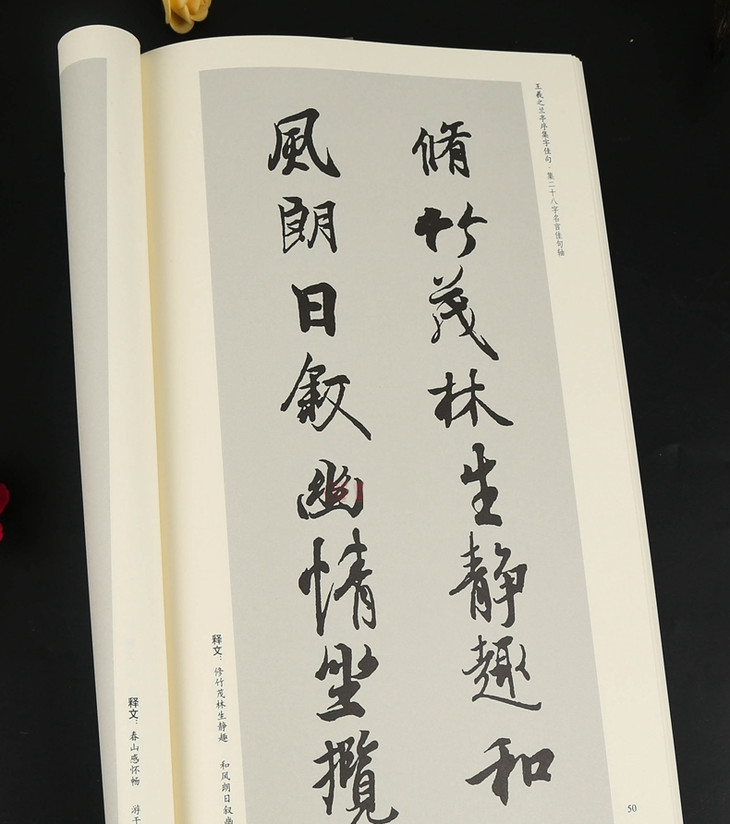 王羲之兰亭序集字佳句·集二十八字名言佳句轴
脩竹茂林生静趣和
風朗日叙幽情坐攬
释文：修竹茂林生静趣　和风朗日叙幽
释文：春山感怀畅　游于
50